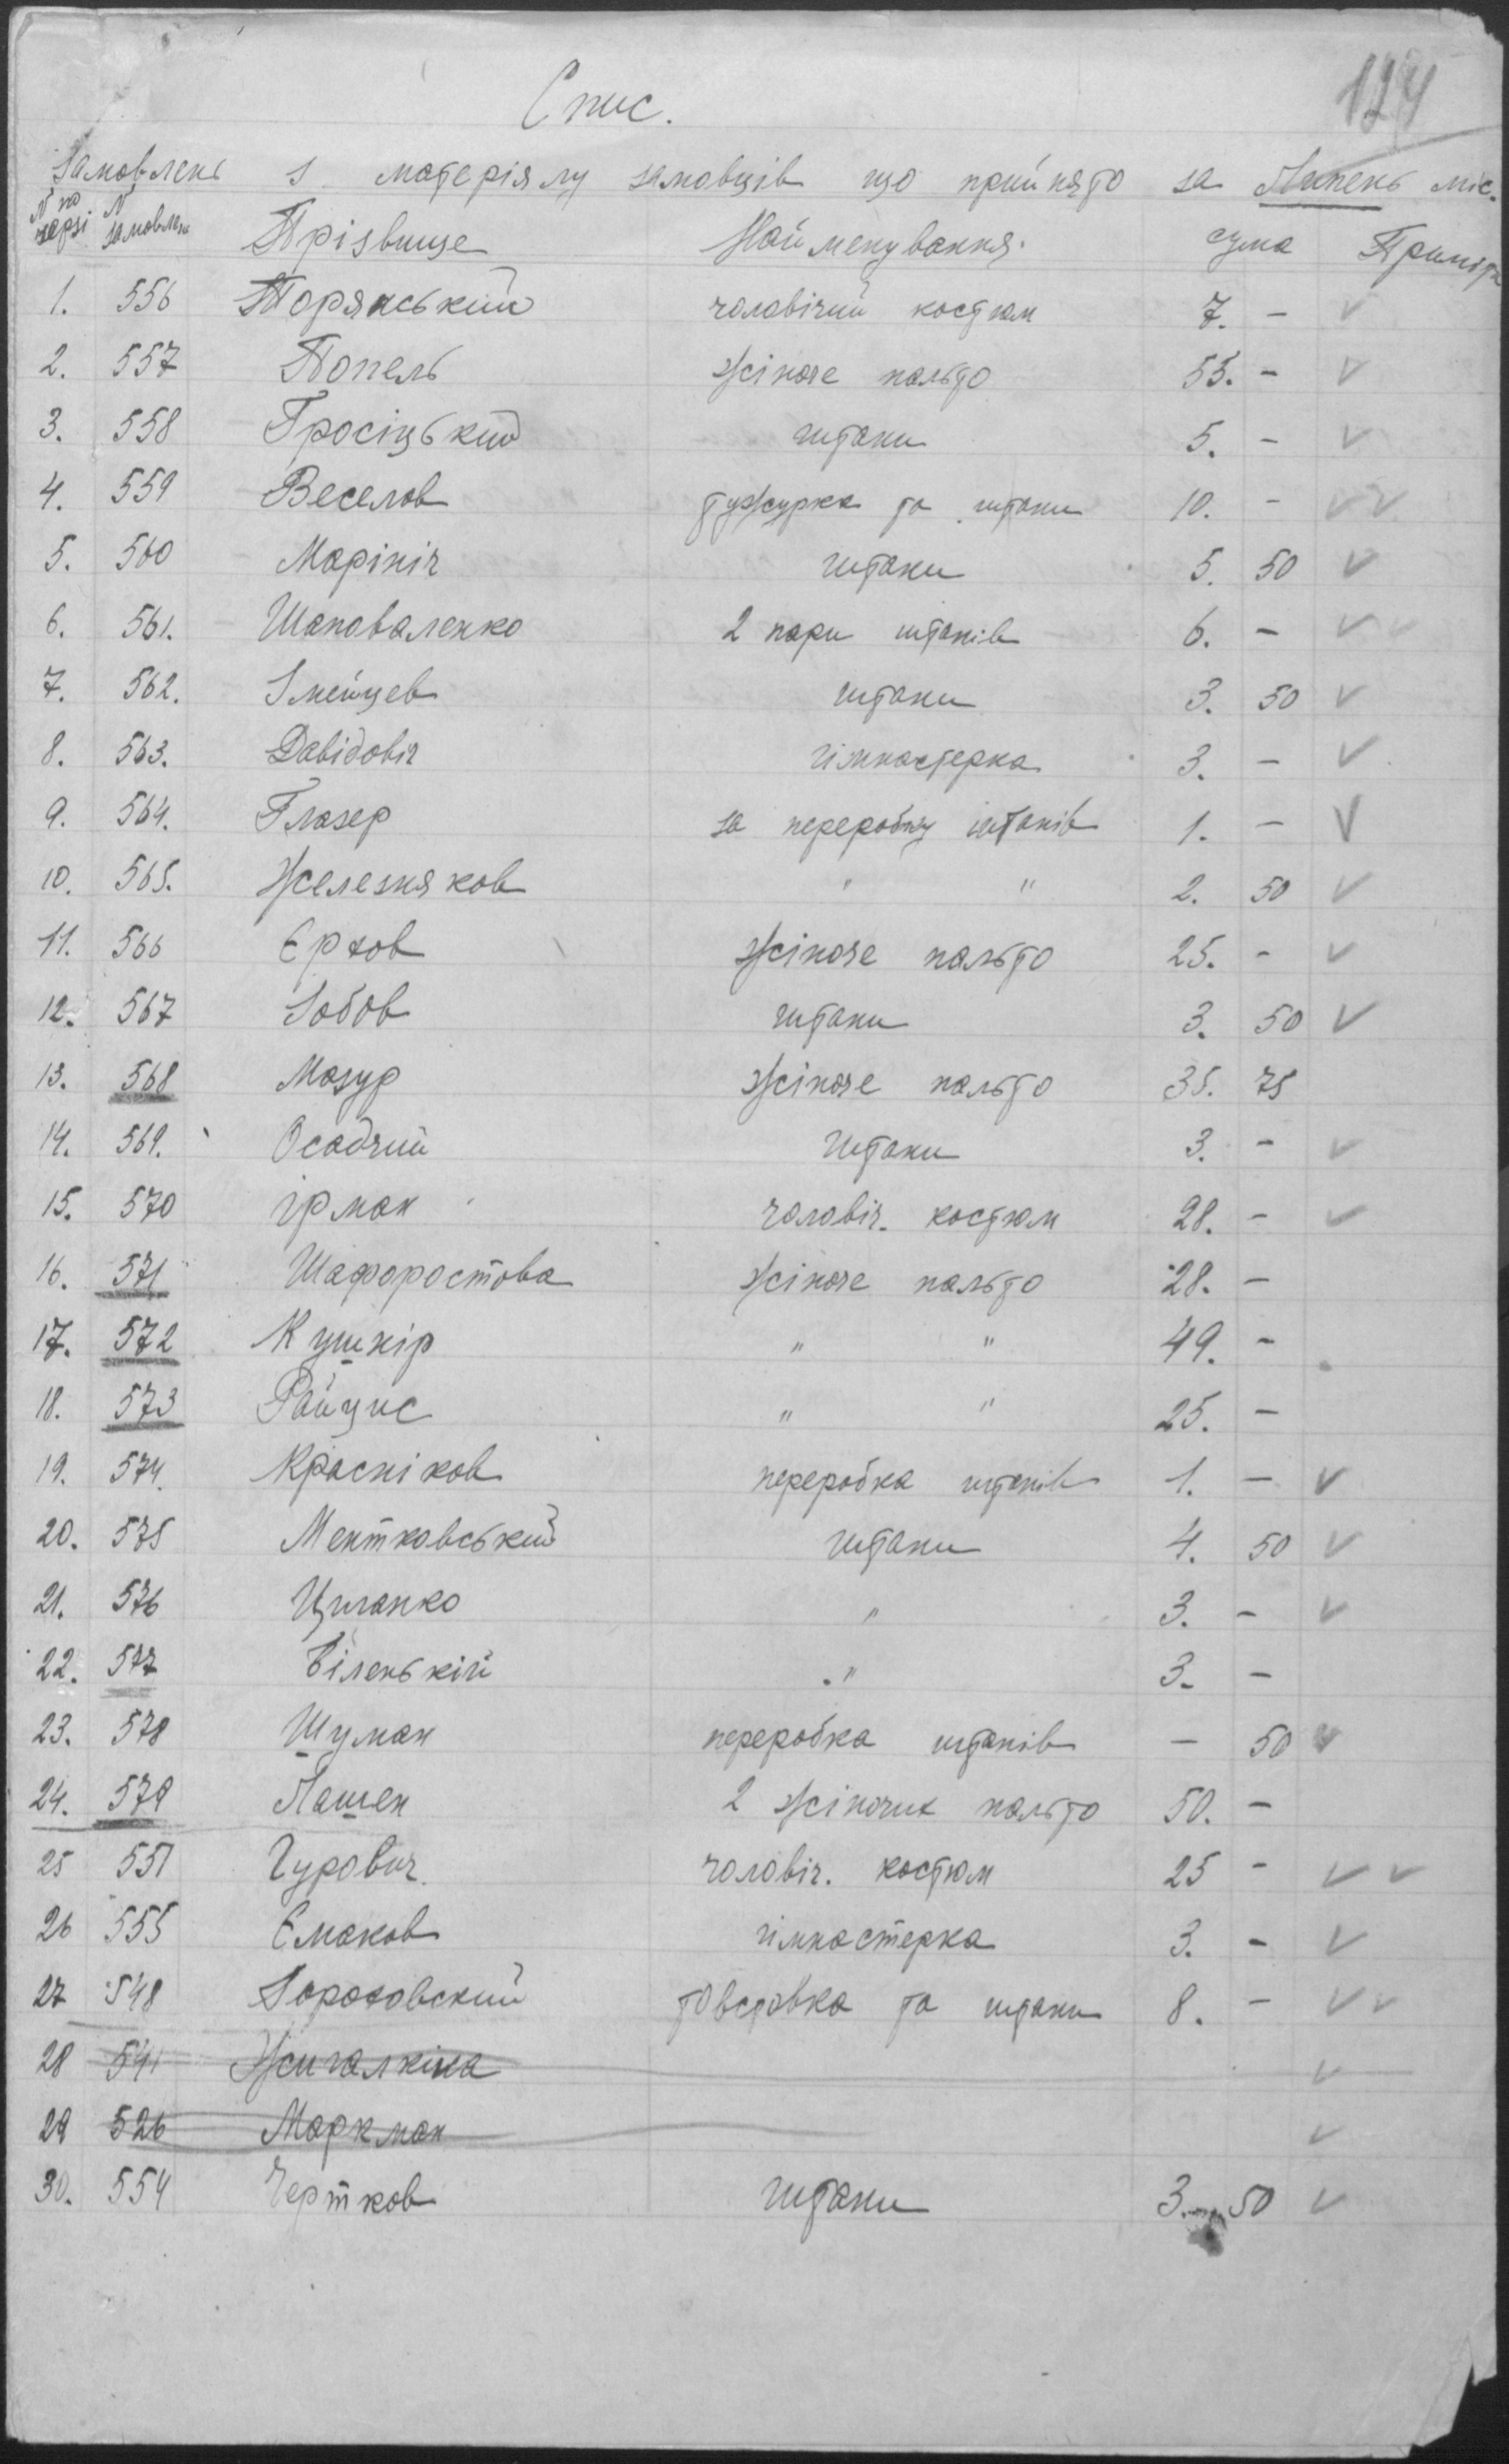 124
Спис.
Замовлень з матеріялу замовців що прийнято за Липень міс.
N по черзі N замовлен Прізвище Найменування. сума Приміт
1. 556 Торянський чоловічий костюм 7. - V
2. 557 Попель жіноче пальто 55. - V
3. 558 Гросіцький штани 5. - V
4. 559 Веселов тужурка та штани 10. - V V
5. 560 Марініч штани 5. 50 V
6. 561. Шаповаленко 2 пари штанів 6. - V V
7. 562. Змейцев штани 3. 50 V
8. 563. Давідовіч гімнастерка 3. - V
9. 564. Глазер за переробку штанів 1. - V
10. 565. Железняков " " 2. 50 V
11. 566 Єрхов жіноче пальто 25. - V
12. 567 Зобов штани 3. 50 V
13. 568 Мазур жіноче пальто 35. 75
14. 569. Осадчий штани 3. - V
15. 570 Ірман чоловіч. костюм 28. - V
16. 571 Шафоростова жіноче пальто 28. -
17. 572 Кушнір " " 49. -
18. 573 Райцис " " 25. -
19. 574. Красніков переробка штанів 1. - V
20. 575 Ментковський штани 4. 50 V
21. 576 Циганко " 3. - V
22. 577 Біленькій " 3. -
23. 578 Шуман переробка штанів - 50 V
24. 579 Пашен 2 жіночих пальто 50. -
25 551 Гурович. чоловіч. костюм 25 - V V
26 555 Ємаков гімнастерка 3. - V
27 548 товстовка та штани 8. - V V
28 541 Жигалкіна V
29 526 Маркман V
30. 554 Чертков штани 3. 50 V